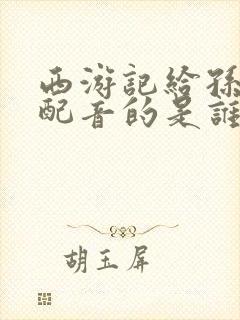 西游記給孫
配音的是誰
胡玉屏